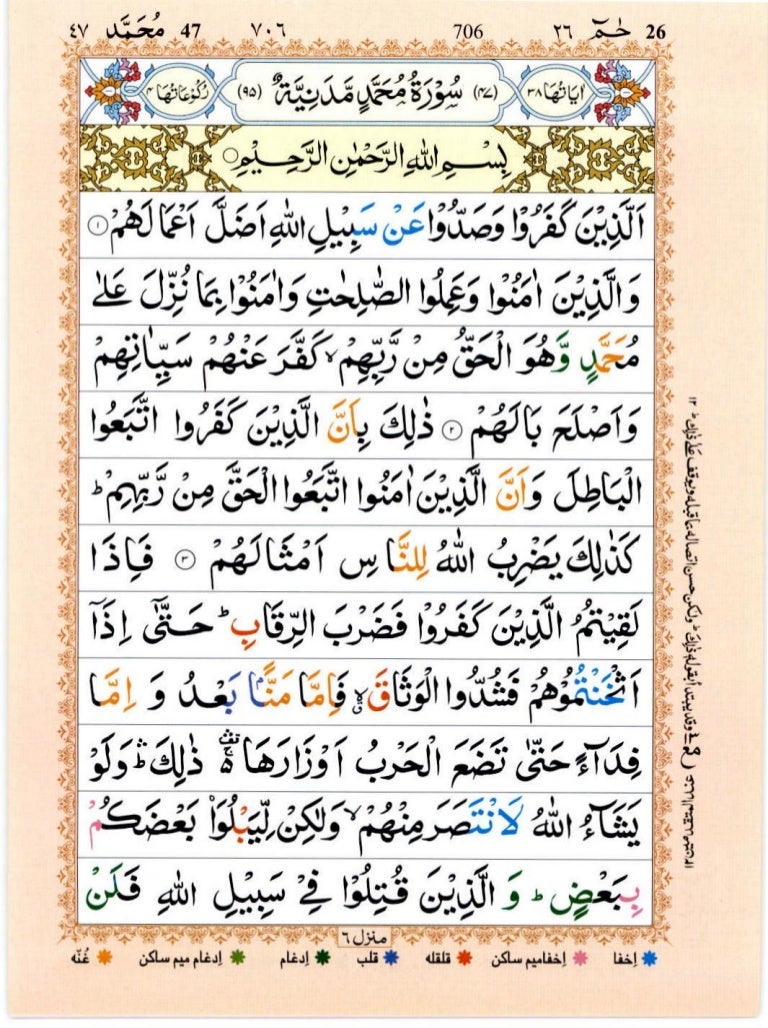 26 حٰمٓ ٢٦ 706 ٧٠٦ 47 مُحَمَّد ٤٧
اٰیَاتُهَا ٣٨ (٤٧) سُوْرَةُ مُحَمَّدٍ مَّدَنِیَّةٌ (٩٥) رُكُوْعَاتُهَا ٤
بِسْمِ اللّٰهِ الرَّحْمٰنِ الرَّحِیْمِ
اَلَّذِیْنَ كَفَرُوْا وَصَدُّوْا عَنْ سَبِیْلِ اللّٰهِ اَضَلَّ اَعْمَالَهُمْ ١
وَالَّذِیْنَ اٰمَنُوْا وَعَمِلُوا الصّٰلِحٰتِ وَاٰمَنُوْا بِمَا نُزِّلَ عَلٰی
مُحَمَّدٍ وَّهُوَ الْحَقُّ مِنْ رَّبِّهِمْ ۙ كَفَّرَ عَنْهُمْ سَیِّاٰتِهِمْ
وَاَصْلَحَ بَالَهُمْ ٢ ذٰلِكَ بِاَنَّ الَّذِیْنَ كَفَرُوا اتَّبَعُوا
الْبَاطِلَ وَاَنَّ الَّذِیْنَ اٰمَنُوا اتَّبَعُوا الْحَقَّ مِنْ رَّبِّهِمْ ؕ
كَذٰلِكَ یَضْرِبُ اللّٰهُ لِلنَّاسِ اَمْثَالَهُمْ ٣ فَاِذَا
لَقِیْتُمُ الَّذِیْنَ كَفَرُوْا فَضَرْبَ الرِّقَابِ ؕ حَتّٰۤی اِذَاۤ
اَثْخَنْتُمُوْهُمْ فَشُدُّوا الْوَثَاقَ ۙ فَاِمَّا مَنًّۢا بَعْدُ وَ اِمَّا
فِدَآءً حَتّٰی تَضَعَ الْحَرْبُ اَوْزَارَهَا ۛ۬ ذٰلِكَ ۛؕ وَلَوْ
یَشَآءُ اللّٰهُ لَانْتَصَرَ مِنْهُمْ ۙ وَلٰكِنْ لِّیَبْلُوَاۡ بَعْضَكُمْ
بِبَعْضٍ ؕ وَ الَّذِیْنَ قُتِلُوْا فِیْ سَبِیْلِ اللّٰهِ فَلَنْ
منزل ٦
اِخفا اِخفامیم ساکن قلقله قلب اِدغام اِدغام میم ساکن غُنّه